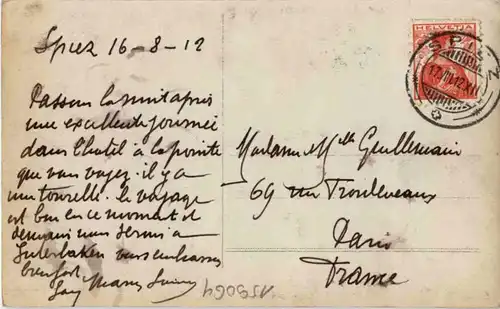 Spiez 16-8-12
Passons la nuit après
une excellente journée
dans l'hôtel à la pointe
que vous voyez. il y a
une tourelle. le voyage
est bon en ce moment et
demain nous serons à
Interlaken vous embrassons
bien fort
HELVETIA
SPIEZ
17.VIII.12.XII
Madame & Mlle Guillemain
69 rue Froidevaux
Paris
France
159064